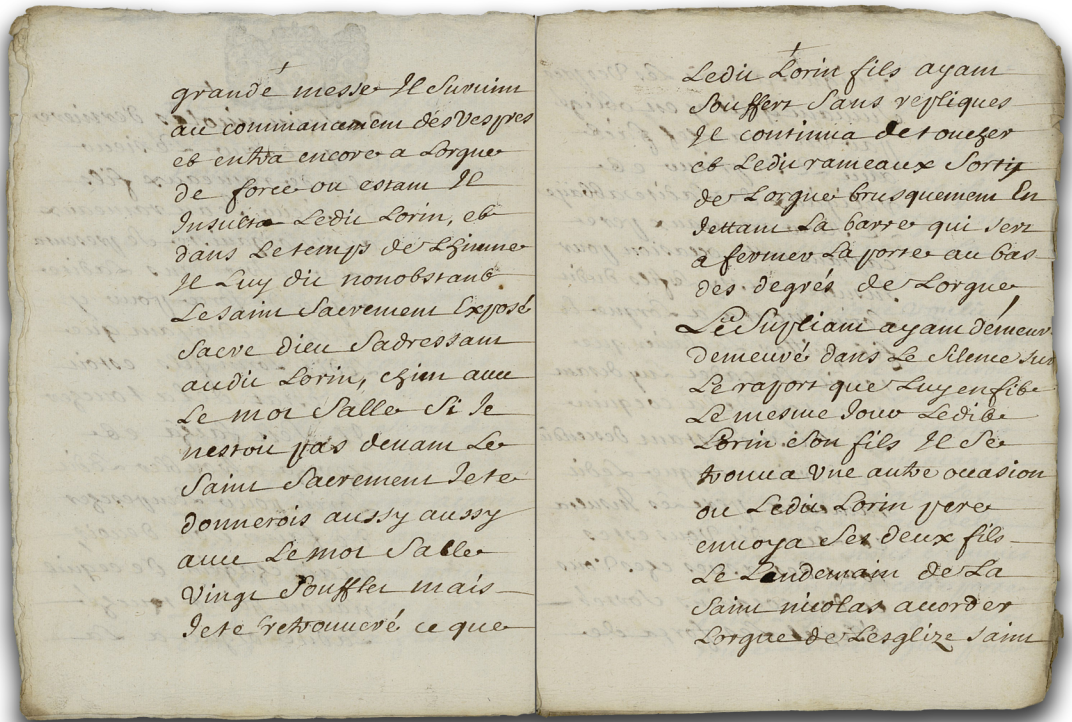 grande messe Il Survint
au commancement des Vespres
et entra encore a Lorgue
de force ou estant Il
Insulta Ledit Lorin, et
dans Le temps de Lhimne
Il Luy dit nonobstant
Le Saint Sacrement Exposé
Sacre dieu Sadressant
audit Lorin, chien avec
Le mot Salle Si Je
nestoit pas devant Le
Saint Sacrement Je te
donnerois aussy aussy
avec Le mot Salle
vingt Soufflet mais
Je te retrouveré ce que
Ledit Lorin fils ayant
Souffert Sans repliques
Il continua de toucher
et Ledit rameaux Sortit
de Lorgue brusquement En
Jettant La barre qui Sert
a fermer La porte au bas
des degrés de Lorgue
Le Supliant ayant démeur
demeuré dans Le Silence Sur
Le raport que Luy en fit
Le mesme Jour Ledit
Lorin Son fils Il Se
trouva une autre occasion
ou Ledit Lorin pere
envoya Ses deux fils
Le Lendemain de La
Saint nicolas accorder
Lorgue de Lesglize Saint